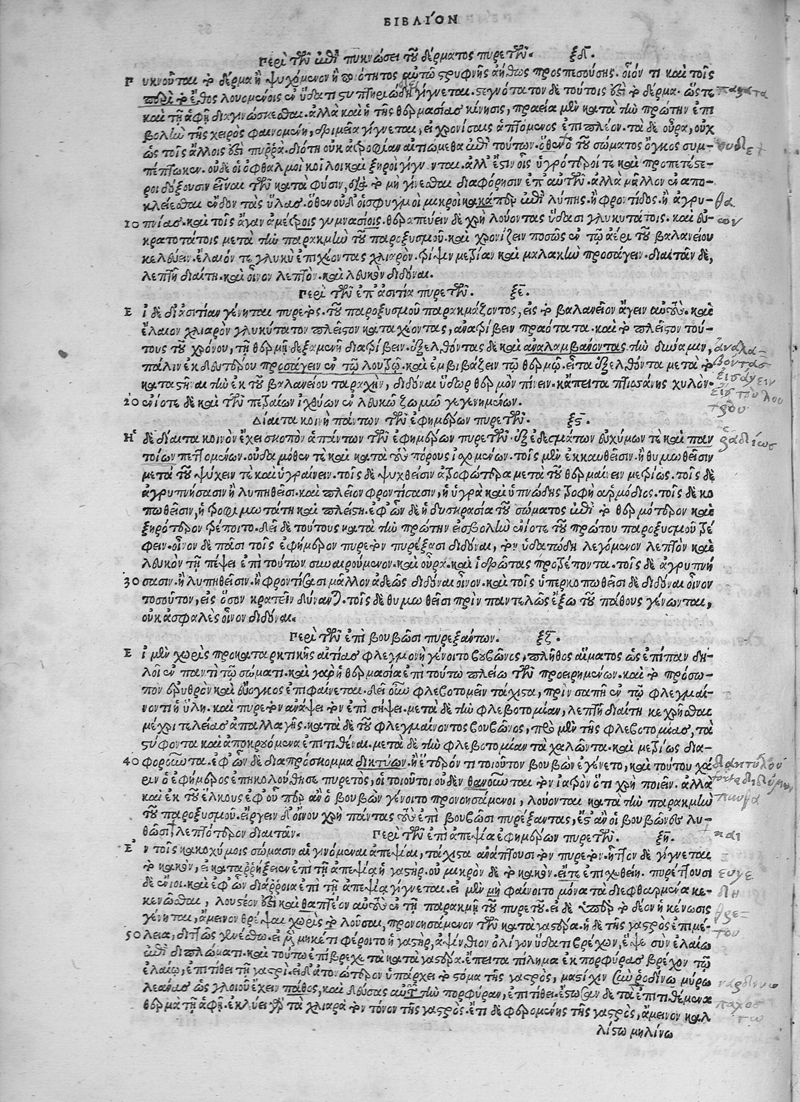 ΒΙΒΛΙΌΝ
Περὶ τῶν ἐπὶ πυκνώσει τοῦ δέρματος πυρετῶν. ξδ.
Πυκνοῦται τὸ δέρμα ἢ ψυχόμενον ἢ ποιότητος αὐτῷ στυφνῆς ἀήθως προσπεσούσης. οἷόν τι καὶ τοῖς
παρὰ τὸ ἔθος λουομένοις ἐν ὕδατι στυπτηριώδει γίγνεται. στεγνότατον δὲ τούτοις ἐστὶ τὸ δέρμα. ὥστε
καὶ τῇ ἁφῇ διαγινώσκεσθαι. ἀλλὰ καὶ ἡ τῆς θερμασίας κίνησις, πραεῖα μὲν κατὰ τὴν πρώτην ἐπι
βολὴν τῆς χειρὸς φαινομένη, δριμεῖα γίγνεται, εἰ χρονίσαις ἁπτόμενος ἐπιπλέον. τὰ δὲ οὖρα, οὐχ
ὡς τοῖς ἄλλοις ἐστὶ πυῤῥά. διότι οὐκ ἀτροφίαν αἰτιώμεθα ἐπὶ τούτων. ὅθεν οὐδὲ τοῦ σώματος ὄγκος συμ-
πέπτωκεν. οὐδὲ οἱ ὀφθαλμοὶ κοῖλοι καὶ ξηροὶ γίγνονται. ἀλλ' ἔστιν οἷς ὑγρότεροί τε καὶ προπετέστε-
ροι δόξουσιν εἶναι τῶν κατὰ φύσιν, διὰ τὸ μὴ γίνεσθαι διαφόρησιν ἐπ' αὐτῶν. ἀλλὰ μᾶλλον ἐναπο-
κλείεσθαι ἔνδον τὰς ὕλας. ὅθεν οὐδ' οἱ σφυγμοὶ μικροὶ καθάπερ ἐπὶ λύπης ἢ φροντίδος ἢ ἀγρυ-
10 πνίας. καὶ τοῖς ἄγαν ἀμέτροις γυμνασίοις. θεραπεύειν δὲ χρὴ λούοντας ὕδασι γλυκυτάτοις. καὶ εὐ-
κρατοτάτοις μετὰ τὴν παρακμὴν τοῦ παροξυσμοῦ. καὶ χρονίζειν ποσῶς ἐν τῷ ἀέρι τοῦ βαλανείου
κελεύειν. ἔλαιόν τε γλυκὺ ἐπιχέοντας χλιαρὸν. τρίψιν μετρίαν καὶ μαλακὴν προσάγειν. διαιτᾶν δὲ,
λεπτῇ διαίτῃ. καὶ οἶνον λεπτὸν. καὶ λευκὸν διδόναι.
Περὶ τῶν ἐπ' ἀσιτίᾳ πυρετῶν. ξε.
Εἰ δὲ δι' ἀσιτίαν γένηται πυρετὸς. τοῦ παροξυσμοῦ παρακμάζοντος, εἰς τὸ βαλανεῖον ἄγειν αὐτούς. καὶ
ἔλαιον χλιαρὸν γλυκύτατον πλεῖστον καταχέοντας, ἀνατρίβειν πραότατα. καὶ τὸ πλεῖστον τού-
τους τοῦ χρόνου, τῇ θερμῇ δεξαμενῇ διατρίβειν. ἐξελθόντας δὲ καὶ ἀναλαμβάνοντας τὴν δύναμιν,
πάλιν ἐκ δευτέρου προσάγειν ἐν τῷ λουτρῷ. καὶ ἐμβιβάζειν τῷ θερμῷ. εἶτα ἐξελθόντα μετὰ τὸ
καταστῆναι τὴν ἐκ τοῦ βαλανείου ταραχὴν, διδόναι ὕδωρ θερμὸν πίνειν. κἄπειτα πτισάνης χυλὸν.
20 ἐνίοτε δὲ καὶ τῶν πετραίων ἰχθύων ἐν λευκῷ ζωμῷ γεγενημένων.
Δίαιτα κοινὴ πάντων τῶν ἐφημέρων πυρετῶν. ξς.
Ἡ δὲ δίαιτα κοινὸν ἔχει σκοπὸν ἁπάντων τῶν ἐφημέρων πυρετῶν. ἐξ ἐδεσμάτων εὐχύμων τε καὶ παν
τοίων πεττομένων. οὐδαμόθεν τε κατὰ τοὺς πόρους ἰσχομένων. τοῖς μὲν ἐκκαυθεῖσιν. ἢ θυμωθεῖσιν
μετὰ τοῦ ψύχειν τε καὶ ὑγραίνειν. τοῖς δὲ ψυχθεῖσιν ἀτροφώτερα μετὰ τοῦ θερμαίνειν μετρίως. τοῖς δὲ
ἀγρυπνήσασιν ἢ λυπηθεῖσι. καὶ πλεῖον φροντίσασιν, ἡ ὑγρὰ καὶ ὑπνώδης τροφὴ ἁρμόδιος. τοῖς δὲ κο
πωθεῖσιν, ἡ τροφιμωτάτη καὶ πλείστη. ἐφ' ὧν δὲ ἡ δυσκρασία τοῦ σώματος ἐπὶ τὸ θερμότερον καὶ
ξηρότερον τρέποιτο. δεῖ δὲ τούτους κατὰ τὴν πρώτην εἰσβολὴν ἐνίοτε τοῦ πρώτου παροξυσμοῦ τρέ
φειν. οἶνον δὲ πᾶσι τοῖς ἐφήμερον πυρετὸν πυρέξασι διδόναι, τὸν ὑδατώδη λεγόμενον λεπτὸν καὶ
λευκὸν τῇ πέψει ἐπὶ τούτων συναιρούμενον. καὶ οὖρα. καὶ ἱδρῶτας προτρέποντα. τοῖς δὲ ἀγρυπνή
30 σασιν. ἢ λυπηθεῖσιν. ἢ φροντίσασι μᾶλλον ἀδεῶς διδόναι οἶνον. καὶ τοῖς ὑπερκοπωθεῖσι δὲ διδόναι οἶνον
τοσοῦτον, εἰς ὅσον κρατεῖν δύνανται. τοῖς δὲ θυμωθεῖσι πρὶν παντελῶς ἔξω τοῦ πάθους γένωνται,
οὐκ ἀσφαλὲς οἶνον διδόναι.
Περὶ τῶν ἐπὶ βουβῶσι πυρεξάντων. ξζ.
Εἰ μὲν χωρὶς προκαταρκτικῆς αἰτίας φλεγμονὴ γένοιτο βουβῶνος, πλῆθος αἵματος ὡς ἐπίπαν δη-
λοῖ ἐν παντὶ τῷ σώματι. καὶ γὰρ ἡ θερμασία ἐπὶ τούτῳ πλείω τῶν προειρημένων. καὶ τὸ πρόσω-
πον ἐρυθρὸν καὶ εὔογκος ἐπιφαίνεται. δεῖ οὖν φλεβοτομεῖν τάχιστα, πρὶν σαπῆ ἐν τῷ φλεγμαί-
νοντι ἡ ὕλη. καὶ πυρετὸν ἀνάψει τὸν ἐπὶ σήψει. μετὰ δὲ τὴν φλεβοτομίαν, λεπτῇ διαίτῃ κεχρῆσθαι
μέχρι τελείας ἀπαλλαγῆς. κατὰ δὲ τοῦ φλεγμαίνοντος βουβῶνος, πρὸ μὲν τῆς φλεβοτομίας, τὰ
στύφοντα καὶ ἀποκρουόμενα ἐπιτιθέναι. μετὰ δὲ τὴν φλεβοτομίαν τὰ χαλῶντα. καὶ μετρίως δια-
40 φοροῦντα. ἐφ' ὧν δὲ διὰ πρόσκομμα δικτύων. ἢ ἕτερόν τι τοιοῦτον βουβὼν ἐγένετο, καὶ τούτου χά
ριν ὁ ἐφήμερος ἐπηκολούθησε πυρετὸς, οἱ τοιοῦτοι οὐδὲν θανοῦνται τὸν ἰατρὸν ὅτι χρὴ ποιεῖν. ἀλλὰ
καὶ ἐκ τοῦ ἕλκους ἐφ' οὗπερ ἂν ὁ βουβὼν γένοιτο προνοησάμενοι, λούονται κατὰ τὴν παρακμὴν
τοῦ παροξυσμοῦ. εἴργειν δ' οἴνου χρὴ πάντας τοὺς ἐπὶ βουβῶσι πυρέξαντας, ἔστ' ἂν οἱ βουβῶνες λυ-
θῶσι, λεπτότερον διαιτᾶν. Περὶ τῶν ἐπὶ ἀπεψίᾳ ἐφημέρων πυρετῶν. ξη.
Ἐν τοῖς κακοχύμοις σώμασιν αἱ γινόμεναι ἀπεψίαι, τάχιστα ἀνάπτουσι τὸν πυρετὸν. ἧττον δὲ γίγνεται
τὸ κακὸν, εἰ καταῤῥήξειεν ἐπὶ τῇ ἀπεψίᾳ ἡ γαστὴρ. οὐ μικρὸν δὲ τὸ κακὸν. εἴτε ἐπισχεθείη. πυρέττουσι
δὲ ἔνιοι. καὶ ἐφ' ὧν διάῤῥοια ἐπὶ τῇ ἀπεψίᾳ γίγνεται. εἰ μὲν μὴ φαίνοιτο μόνα τὰ διεφθαρμένα κε-
κενῶσθαι, λουστέον ἐστὶ καὶ θρεπτέον αὐτοὺς ἐν τῇ παρακμῇ τοῦ πυρετοῦ. εἰ δὲ ὑπὲρ τὸ δέον ἡ κένωσις
γένηται, ἄμεινον θρέψαι χωρὶς τὸ λοῦσαι, προνοησάμενον τῶν κατὰ γαστέρα. ἡ δὲ τῆς γαστρὸς ἐπιμέ-
50 λεια, διττῶς γινέσθω. εἰ μὲν μηκέτι φέροιτο ἡ γαστὴρ, ἀψίνθιον ὀλίγον ὕδατι βρέχων, ἕψε σὺν ἐλαίῳ
ἐπὶ διπλώματι. καὶ τούτῳ ἐπιβρέχε τὰ κατὰ γαστέρα. ἔπειτα πίλημα ἐκ πορφύρας βρέχον τῷ
ἐλαίῳ, ἐπιτίθει τῇ γαστρί. εἰ δ' ἀτονώτερον ὑπάρχει τὸ στόμα τῆς γαστρὸς, μαστίχην σὺν ῥοδίνῳ μύρῳ
λεάνας ὡς γλοιοῦ ἔχειν πάθος, καὶ δεύσας αὐτῷ τὴν πορφύραν, ἐπιτίθει. ἔστωσαν δὲ τὰ ἐπιτιθέμενα
θερμὰ τῇ ἁφῇ. ἐκλύει γὰρ τὰ χλιαρὰ τὸν τόνον τῆς γαστρὸς. ἔτι δὲ φερομένης τῆς γαστρὸς, ἄμεινον καλ
λίστῳ μηλίνῳ